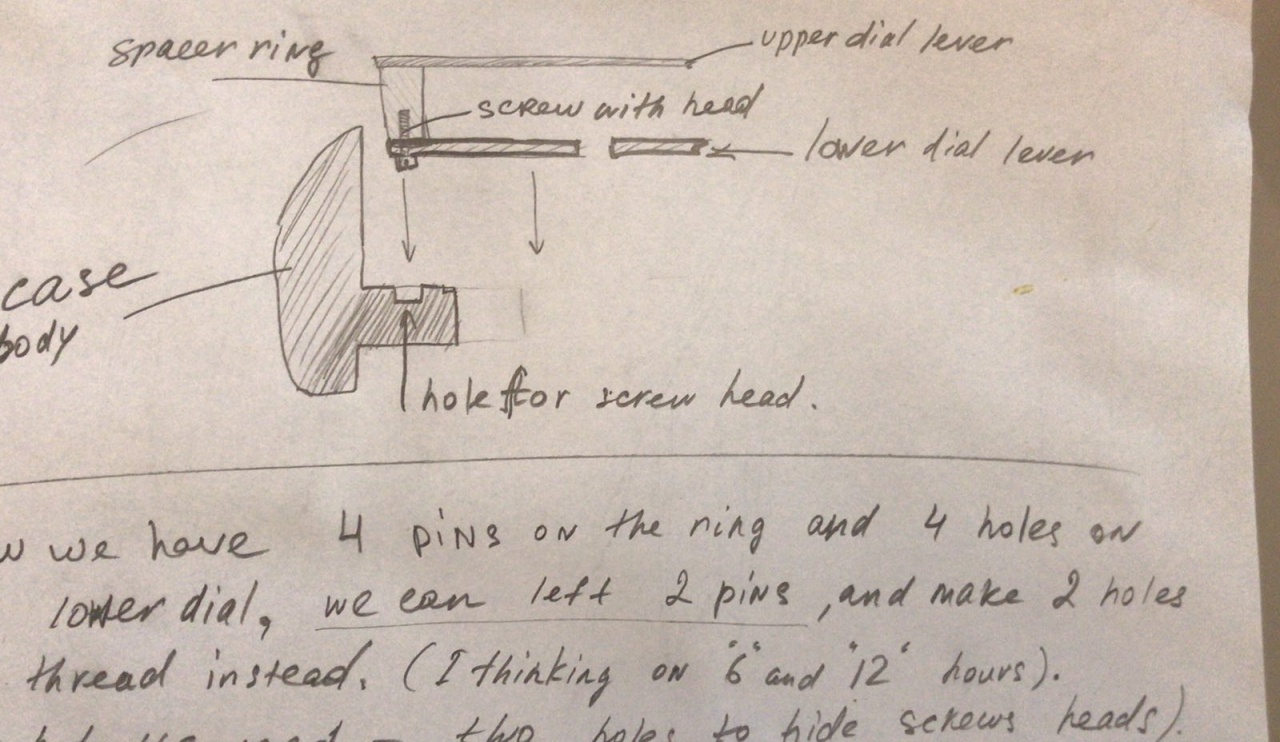 spacer ring
upper dial lever
screw with head
lower dial lever
case
body
hole for screw head.
w we have 4 pins on the ring and 4 holes on
lower dial, we can left 2 pins, and make 2 holes
thread instead. (I thinking on "6" and "12" hours).
two holes to hide screws heads).